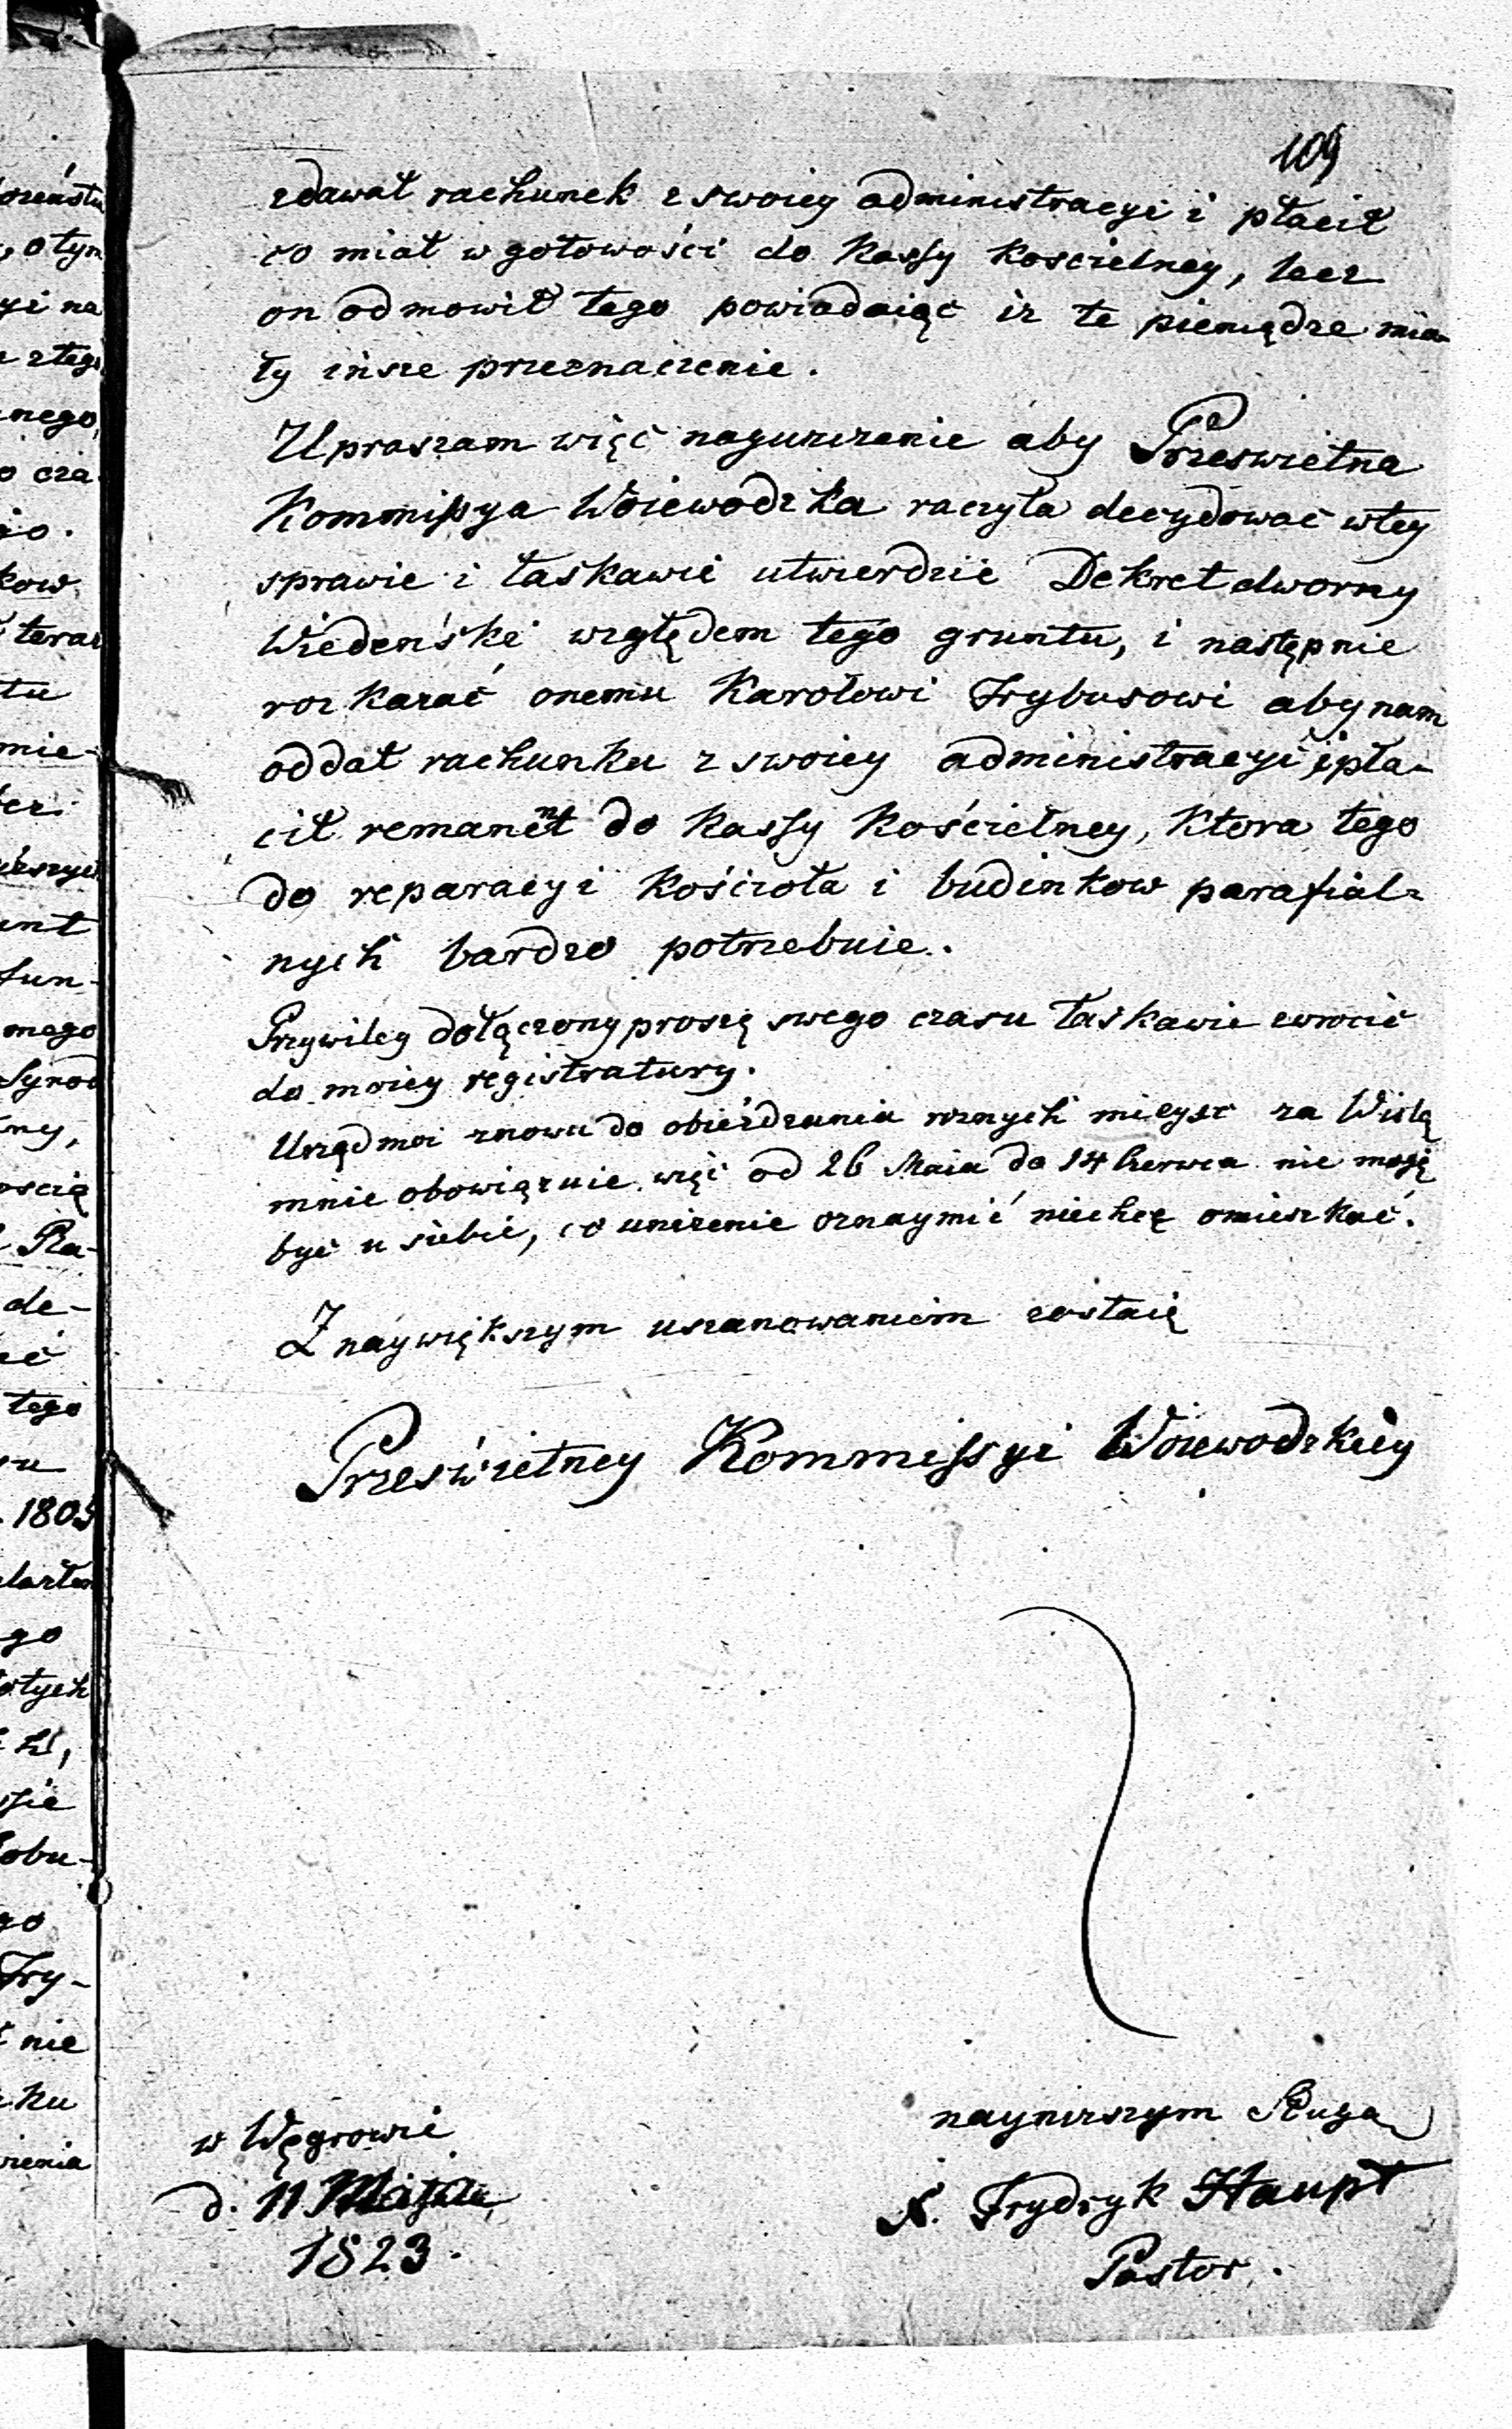 109
zdawał rachunek z swoiey administracyi i płacił
co miał w gotowości do Kassy Koscielney, lecz
on odmowił tego powiadaiąc iz te pieniądze mia-
ły insze przeznaczenie.
Upraszam więc nayunizenie aby Przeswietna
Kommissya Woiewodzka raczyła decydować w tey
sprawie i łaskawie utwierdzić Dekret dworny
Wiedeński względem tego gruntu, i następnie
rozkazać onemu Karolowi Frybusowi aby nam
oddał rachunku z swoiey administracyi i pła-
cił remanent do Kassy Kościelney, ktora tego
do reparacyi Kościoła i budinkow parafial-
nych bardzo potrzebuie.
Przywiley dołączony proszę swego czasu łaskawie zwrocić
do moiey registratury.
Urząd moi znowu do obieżdzania roznych mieysc za Wisłą
mnie obowiązuie więc od 26 Maia do 14 Czerwca nie mogę
być u siebie, co unizenie oznaymić niechcę omieszkać.
Z naywiększym uszanowaniem zostaię
Prześwietney Kommissyi Woiewodzkiey
nayniższym Sługą
w Węgrowie
d. 11 Maja
X. Frydryk Haupt
1823.
Pastor.